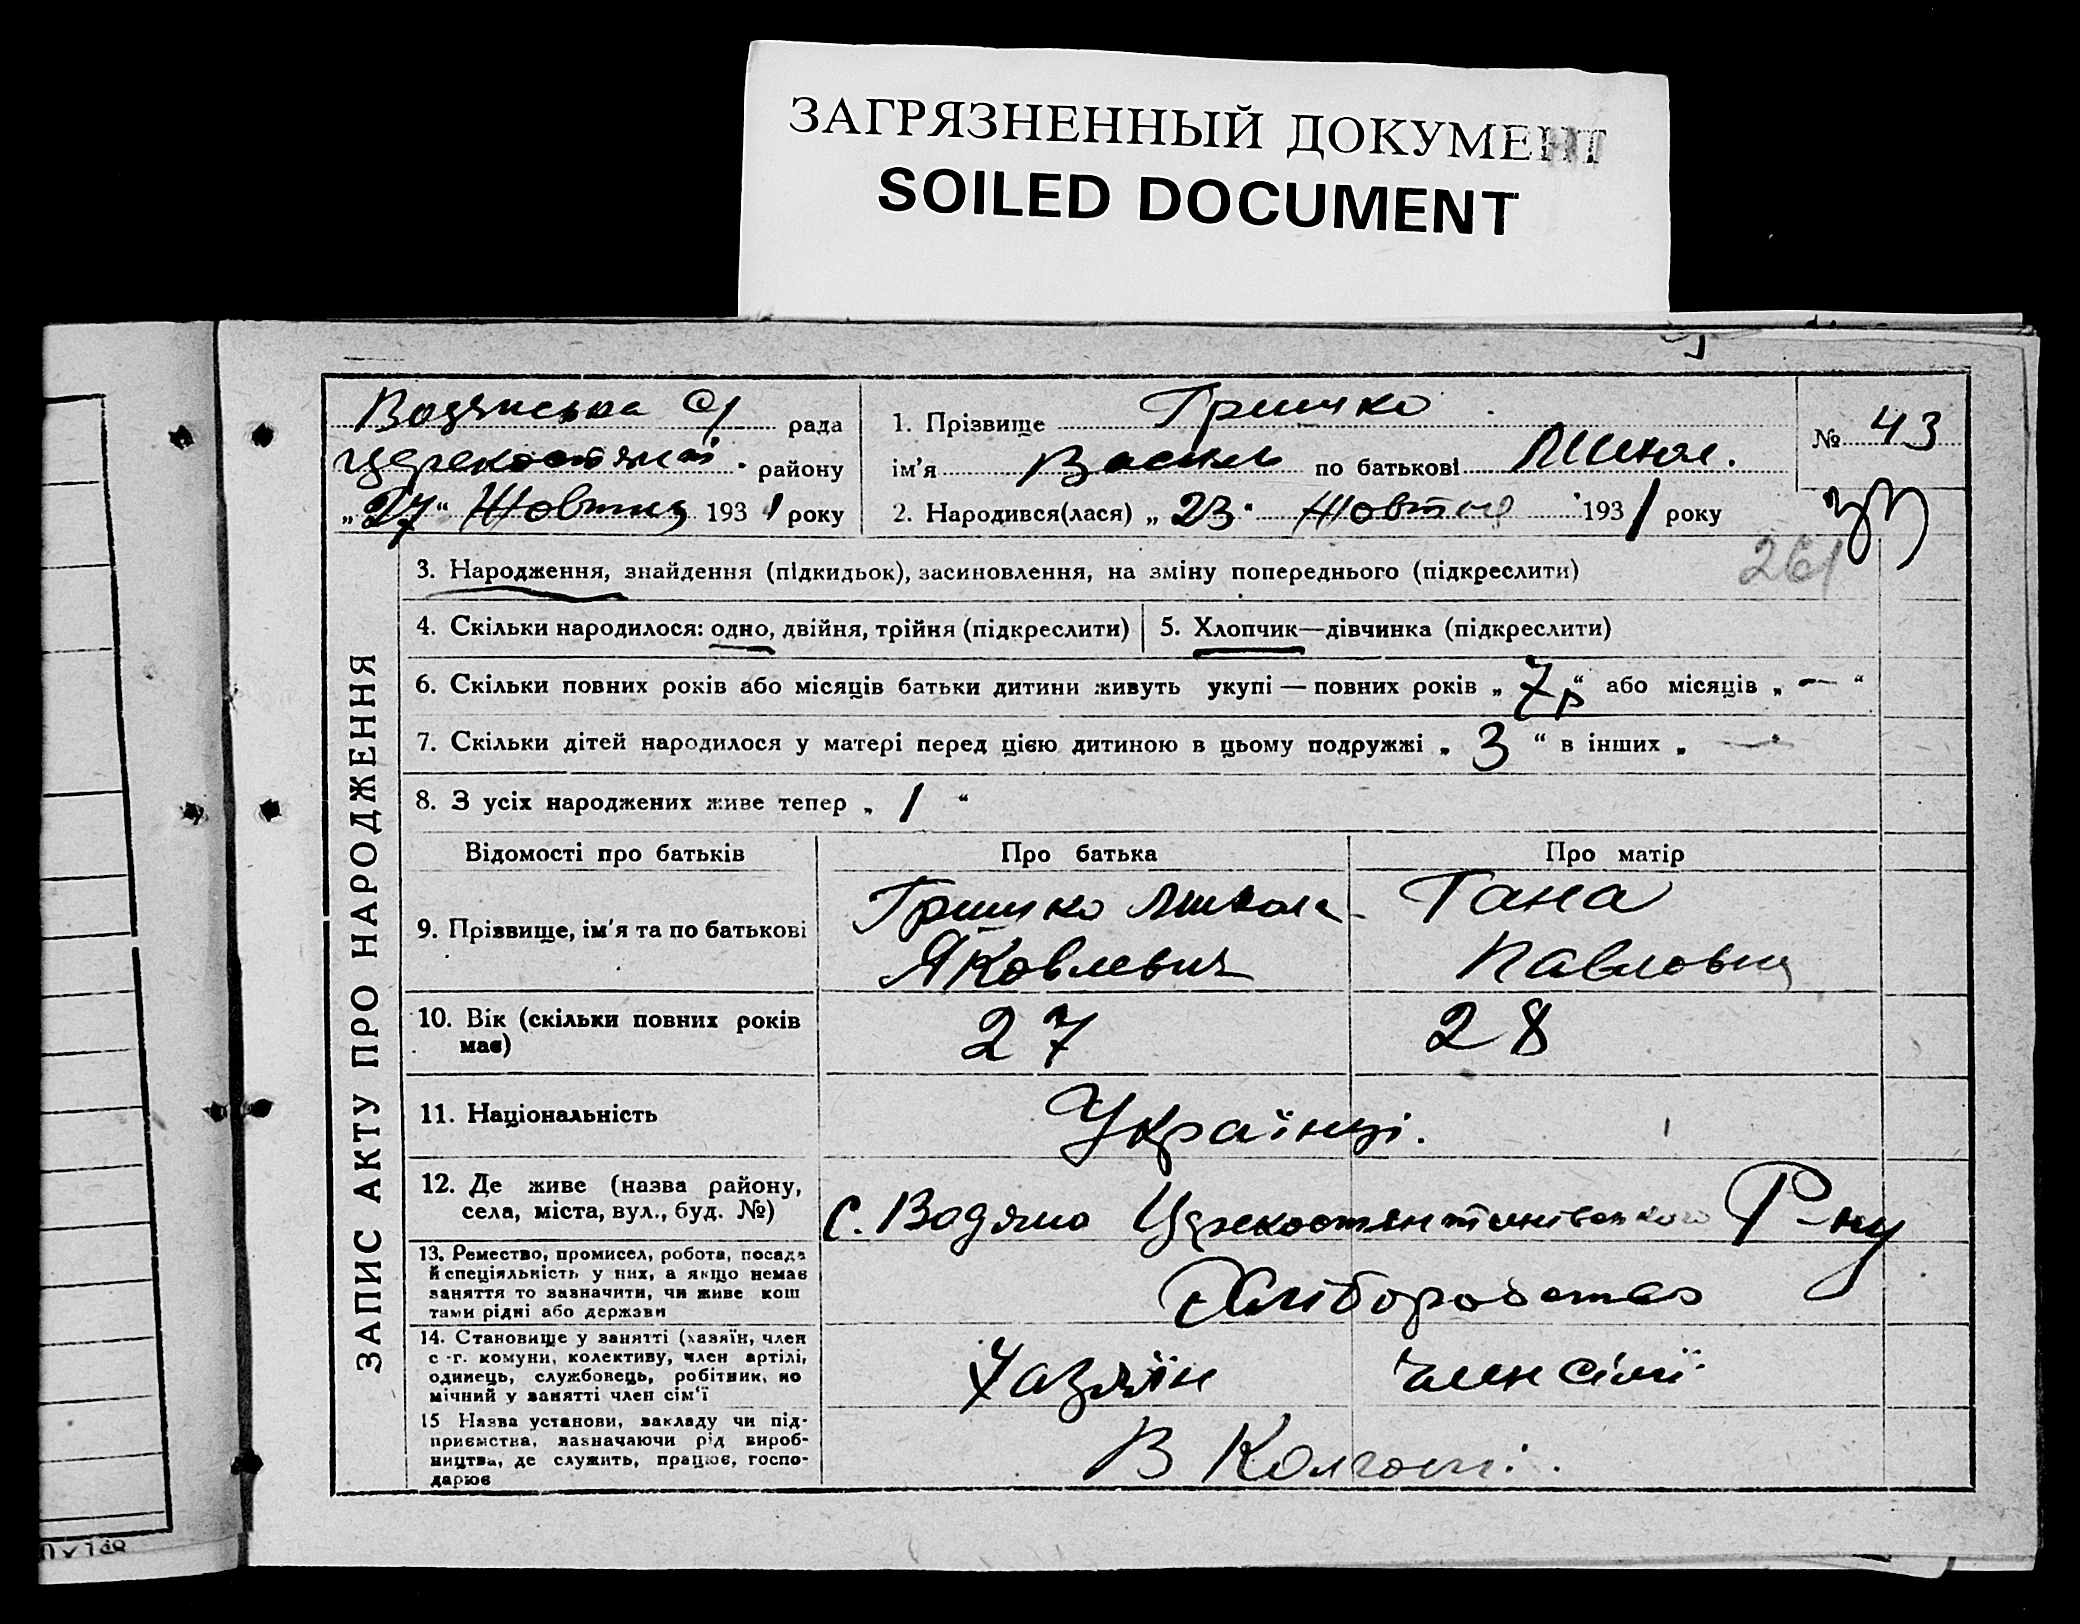 ЗАГРЯЗНЕННЫЙ ДОКУМЕНТ
SOILED DOCUMENT
Водянська С/ рада
району
„27“ Жовтня 1931 року
1. Прізвище Гришко
ім'я Василь по батькові Микол.
2. Народився(лася) „23“ Жовтня 1931 року
№ 43
33
261
ЗАПИС АКТУ ПРО НАРОДЖЕННЯ
3. Народження, знайдення (підкидьок), засиновлення, на зміну попереднього (підкреслити)
4. Скільки народилося: одно, двійня, трійня (підкреслити)
5. Хлопчик—дівчинка (підкреслити)
6. Скільки повних років або місяців батьки дитини живуть укупі — повних років „7р“ або місяців „—“
7. Скільки дітей народилося у матері перед цією дитиною в цьому подружжі „3“ в інших „—“
8. З усіх народжених живе тепер „1“
Відомості про батьків Про батька Про матір
9. Прізвище, ім'я та по батькові
Гришко Микола
Яковлевич
Гана
Павловна
10. Вік (скільки повних років
має)
27 28
11. Національність Українці.
12. Де живе (назва району,
села, міста, вул., буд. №)
с. Водяно Р-ну
13. Ремество, промисел, робота, посада
й спеціяльність у них, а якщо немає
заняття то зазначити, чи живе кош
тами рідні або держави
Хлібороботво
14. Становище у занятті (хазяїн, член
с.-г. комуни, колективу, член артілі,
одинець, службовець, робітник, по
мічний у занятті член сім'ї
Хазяїн член сімї
15 Назва установи, закладу чи під-
приємства, зазначаючи рід вироб-
ництва, де служить, працює, госпо-
дарює
В Колгоспі.